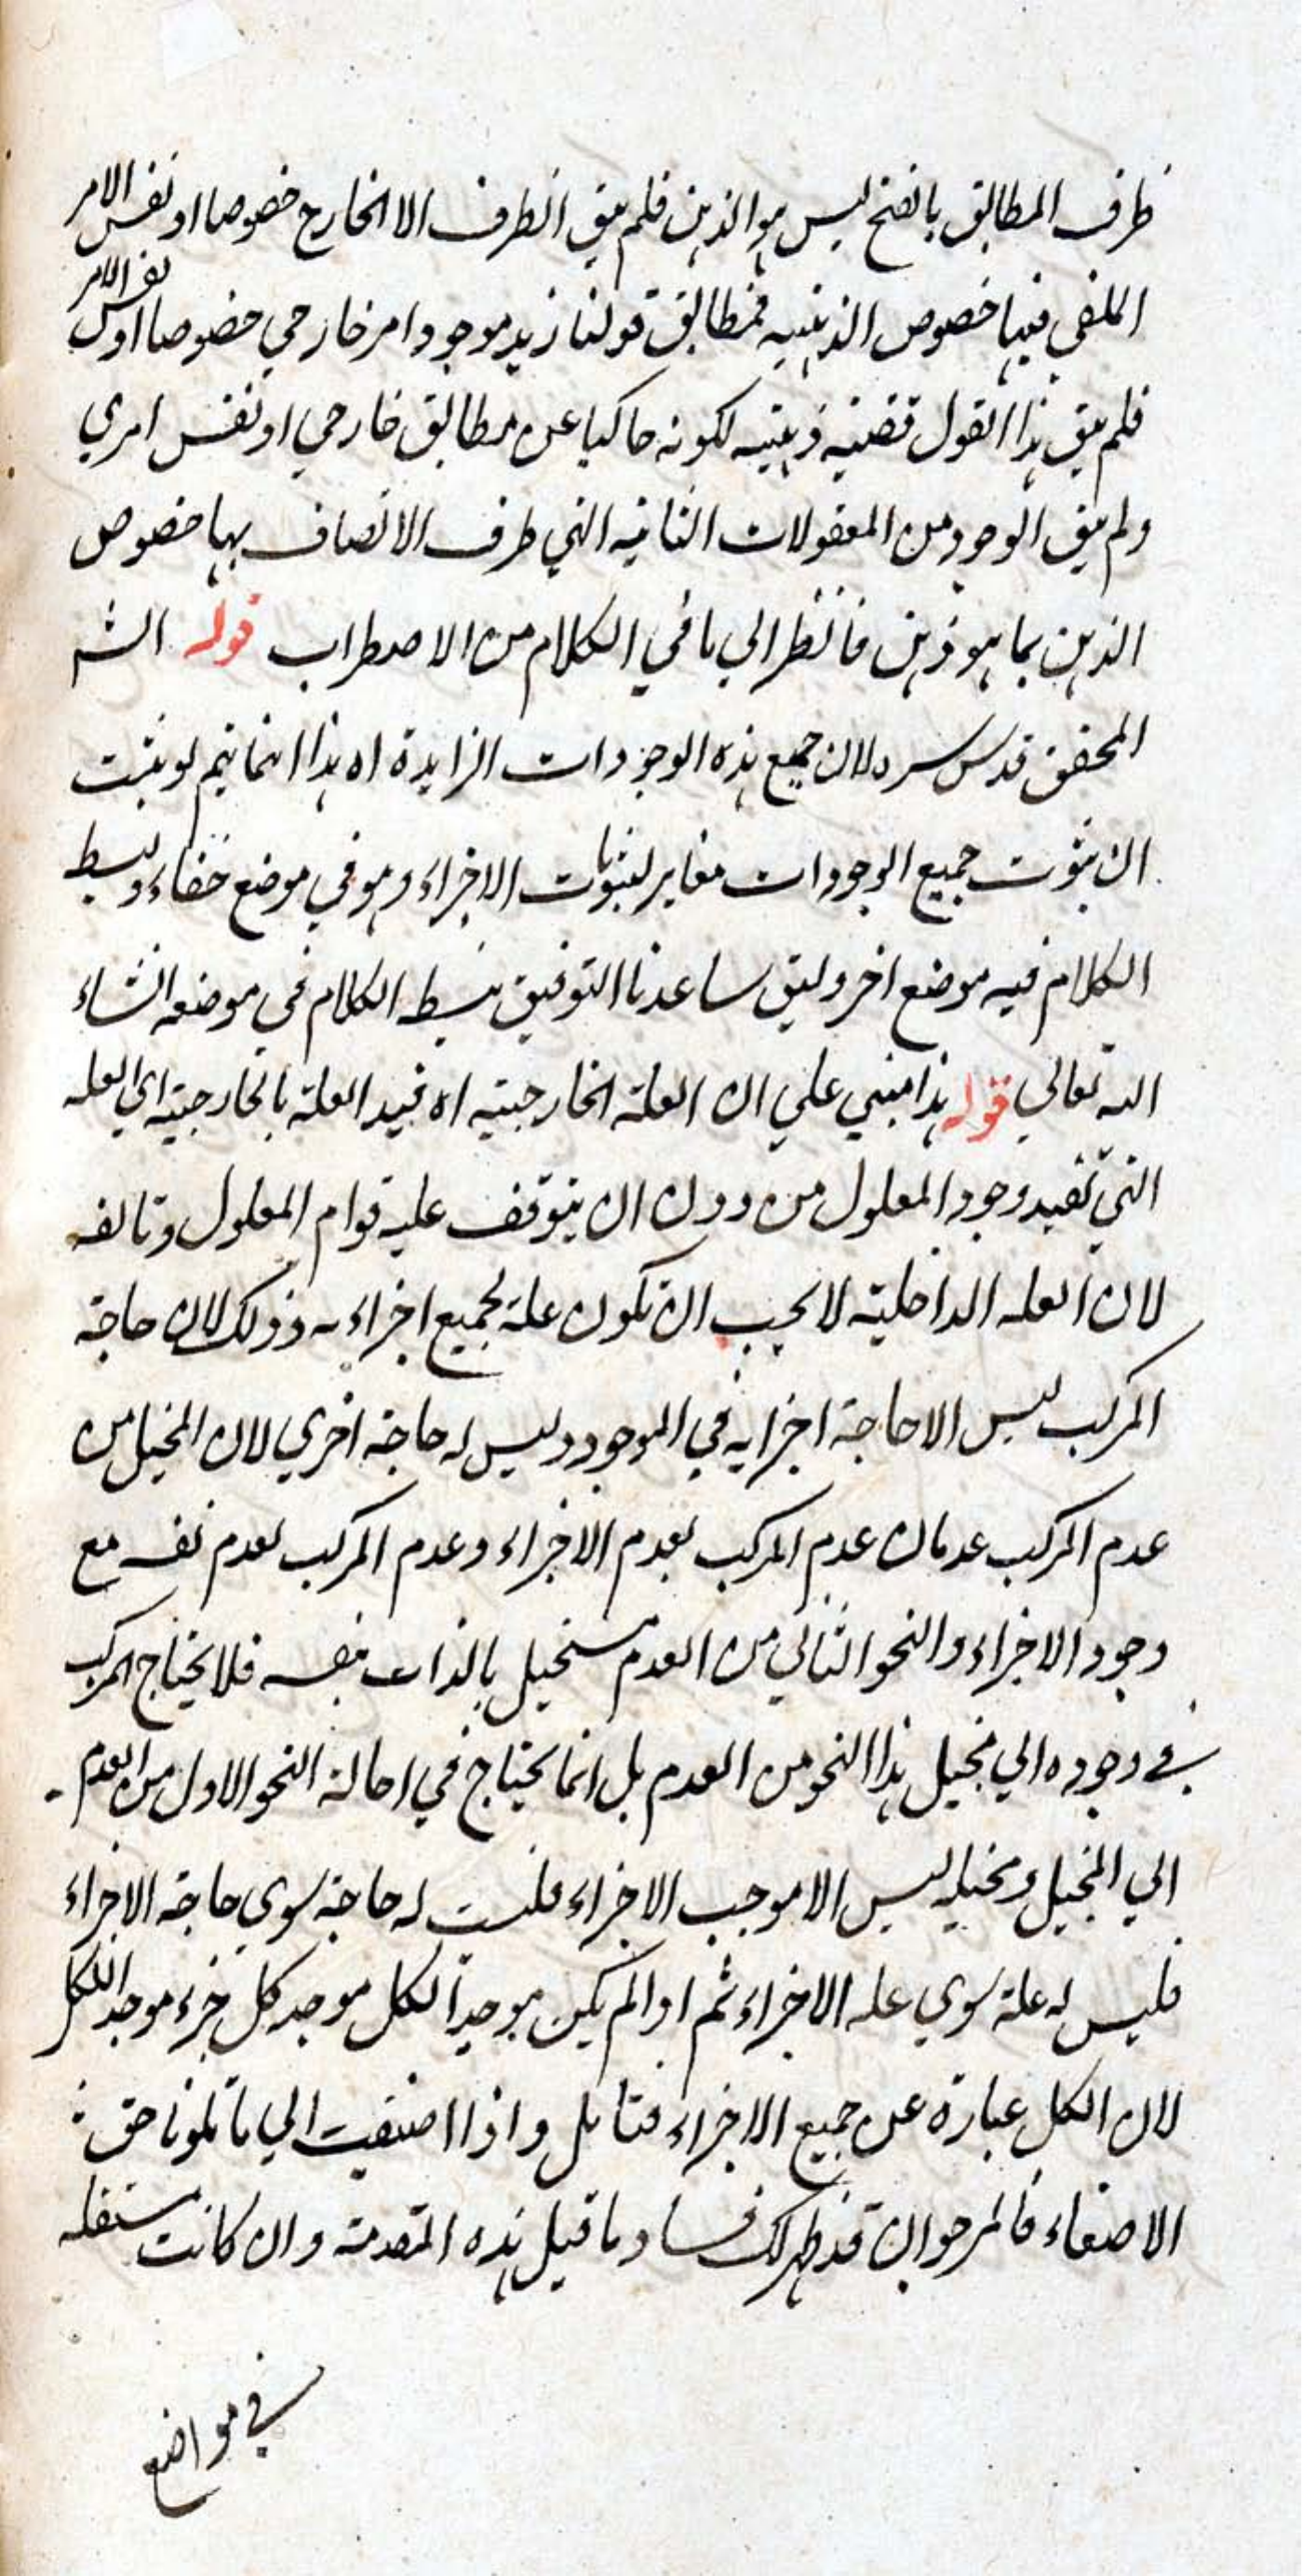 ظرف المطابق بالفتح ليس هو الذهن فلم يبق الظرف الا الخارج خصوصا او نفس الامر
الملغي فيها خصوص الذهنيه فمطابق قولنا زيد موجود امر خارجي خصوصا او نفس الامر
فلم يبق هذا القول قضية ذهنيه لكونه حاكيا عن مطابق خارجي او نفس امري
ولم يبق الوجود من المعقولات الثانيه التي ظرف الاتصاف بها خصوص
الذهن بما هو ذهن فانظر الي ما في الكلام من الاضطراب قوله الشـ
المحقق قدس سره لان جميع هذه الوجودات الزايدة اه هذا انما يتم لو يثبت
ان ثبوت جميع الوجودات مغاير لثبوتات الاجزاء وهو في موضع خفاء وبسط
الكلام فيه موضع اخر ولئن ساعدنا التوفيق نبسط الكلام في موضعه انشاء
الله تعالي قوله هذا مبني علي ان العلة الخارجية اه قيد العلة بالخارجية اي العله
التي تفيد وجود المعلول من دون ان يتوقف عليه قوام المعلول وتالفه
لان العله الداخلية لا يجب ان تكون علة لجميع اجزاءه وذلك لان حاجة
المركب ليس الا حاجة اجزايه في الوجود وليس له حاجة اخري لان المخيل من
عدم المركب عدمان عدم المركب بعدم الاجزاء وعدم المركب بعدم نفسه مع
وجود الاجزاء والنحو الثاني من العدم مستحيل بالذات بنفسه فلا يحتاج المركب
في وجوده الي محيل هذا النحو من العدم بل انما يحتاج في احالة النحو الاول من العدم
الي المحيل ومحيله ليس الا موجب الاجزاء فليست له حاجة سوي حاجة الاجزاء
فليس له علة سوي علة الاجزاء ثم اذا لم يكن موجد الكل موجد كل جزء موجدا للكل
لان الكل عبارة عن جميع الاجزاء فتامل واذا اصغيت الي ما تلونا حق
الاصغاء فالمرجو ان قد ظهر لك فساد ما قيل هذه المقدمة وان كانت مستعمله
في مواضع